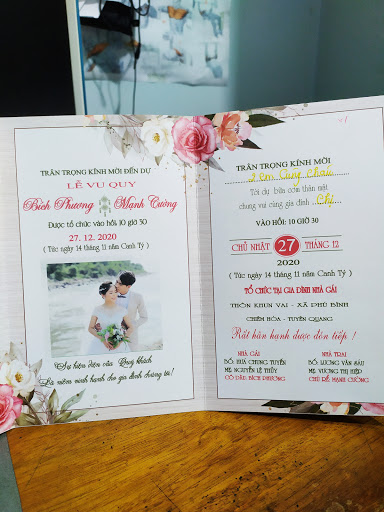 TRÂN TRỌNG KÍNH MỜI ĐẾN DỰ
LỄ VU QUY
Bích Phượng Mạnh Cường
ĐƯỢC TỔ CHỨC VÀO HỒI 10 GIỜ 30
27. 12. 2020
( Tức ngày 14 tháng 11 năm Canh Tý )
Sự hiện diện của Quý khách
Là niềm vinh hạnh cho gia đình chúng tôi!
TRÂN TRỌNG KÍNH MỜI
Quý
Tới dự bữa cơm thân mật
chung vui cùng gia đình Chị
VÀO HỒI: 10 GIỜ 30
CHỦ NHẬT 27 THÁNG 12
2020
( Tức ngày 14 tháng 11 năm Canh Tý )
TỔ CHỨC TẠI GIA ĐÌNH NHÀ GÁI
THÔN KHUN VAI - XÃ PHÚ BÌNH
CHIÊM HÓA - TUYÊN QUANG
Rất hân hạnh được đón tiếp !
NHÀ GÁI NHÀ TRAI
BỐ: HÀ CHUNG TUYẾN BỐ: LƯƠNG VĂN SÁU
MẸ: NGUYỄN LỆ THỦY MẸ: VƯƠNG THỊ HIỆP
CÔ DÂU: BÍCH PHƯỢNG CHÚ RỂ: MẠNH CƯỜNG